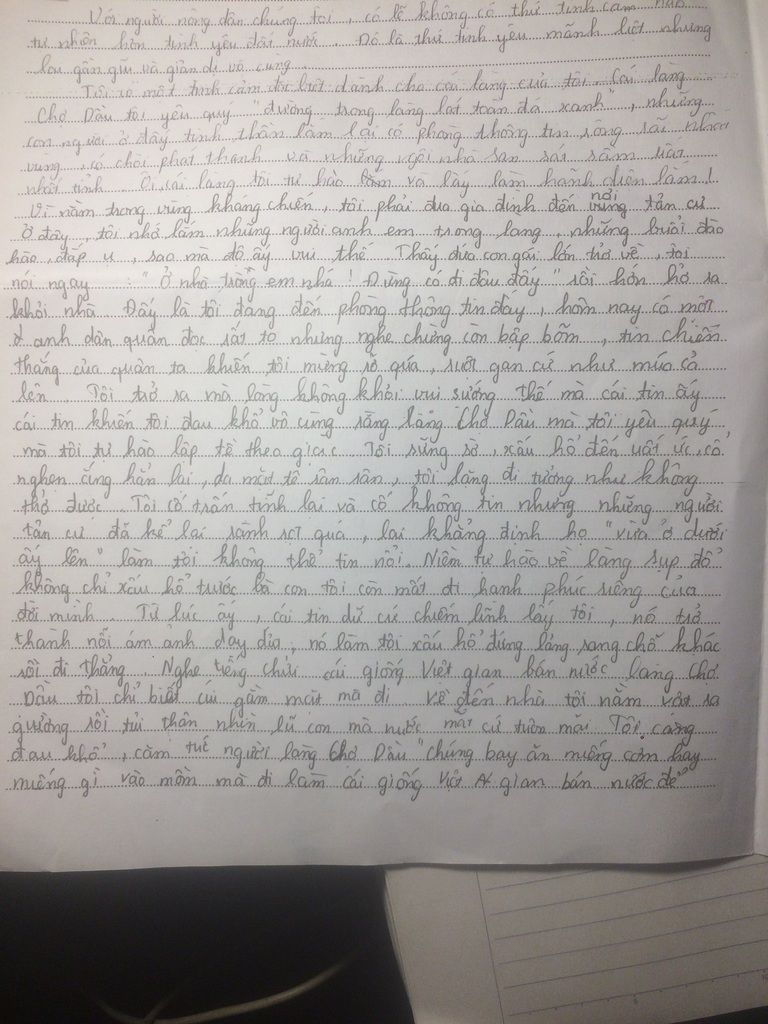 Với người nông dân chúng tôi, có lẽ không có thứ tình cảm nào
tự nhiên hơn tình yêu đất nước. Đó là thứ tình yêu mãnh liệt nhưng
lại gần gũi và giản dị vô cùng.
Tôi có một tình cảm đặc biệt dành cho cái làng của tôi. Cái làng
Chợ Dầu tôi yêu quý "đường trong làng lát toàn đá xanh", những
con người ở đây tinh thần lắm lại có phòng thông tin rộng rãi nhất
vùng, có chòi phát thanh và những ngôi nhà san sát sầm uất
nhất tỉnh. Ôi cái làng tôi tự hào lắm và lấy làm hãnh diện lắm!
Vì nằm trong vùng kháng chiến, tôi phải đưa gia đình đến nơi vùng tản cư
Ở đây, tôi nhớ lắm những người anh em trong làng, những buổi đào
hào, đắp ụ, sao mà độ ấy vui thế. Thấy đứa con gái lớn trở về, tôi
nói ngay: "Ở nhà trông em nhá! Đừng có đi đâu đấy" rồi hớn hở ra
khỏi nhà. Đấy là tôi đang đến phòng thông tin đây, hôm nay có một
anh dân quân đọc rất to nhưng nghe chừng còn bập bõm, tin chiến
thắng của quân ta khiến tôi mừng rỡ quá, ruột gan cứ như múa cả
lên. Tôi trở ra mà lòng không khỏi vui sướng thế mà cái tin ấy
cái tin khiến tôi đau khổ vô cùng rằng làng Chợ Dầu mà tôi yêu quý
mà tôi tự hào lập tề theo giặc. Tôi sững sờ, xấu hổ đến uất ức, cổ
nghẹn ắng hẳn lại, da mặt tê rân rân, tôi lặng đi tưởng như không
thở được. Tôi cố trấn tĩnh lại và cố không tin nhưng những người
tản cư đã kể lại rành rọt quá, lại khẳng định họ "vừa ở dưới
ấy lên" làm tôi không thể tin nổi. Niềm tự hào về làng sụp đổ
không chỉ xấu hổ trước bà con tôi còn mất đi hạnh phúc riêng của
đời mình. Từ lúc ấy, cái tin dữ cứ chiếm lĩnh lấy tôi, nó trở
thành nỗi ám ảnh day dứa, nó làm tôi xấu hổ đứng lảng sang chỗ khác
rồi đi thẳng. Nghe tiếng chửi cái giống Việt gian bán nước làng Chợ
Dầu tôi chỉ biết cúi gằm mặt mà đi. Về đến nhà tôi nằm vật ra
giường rồi tủi thân nhìn lũ con mà nước mắt cứ tuôn mãi. Tôi càng
đau khổ, căm tức người làng Chợ Dầu "chúng bay ăn miếng cơm hay
miếng gì vào mồm mà đi làm cái giống Việt gian bán nước để"